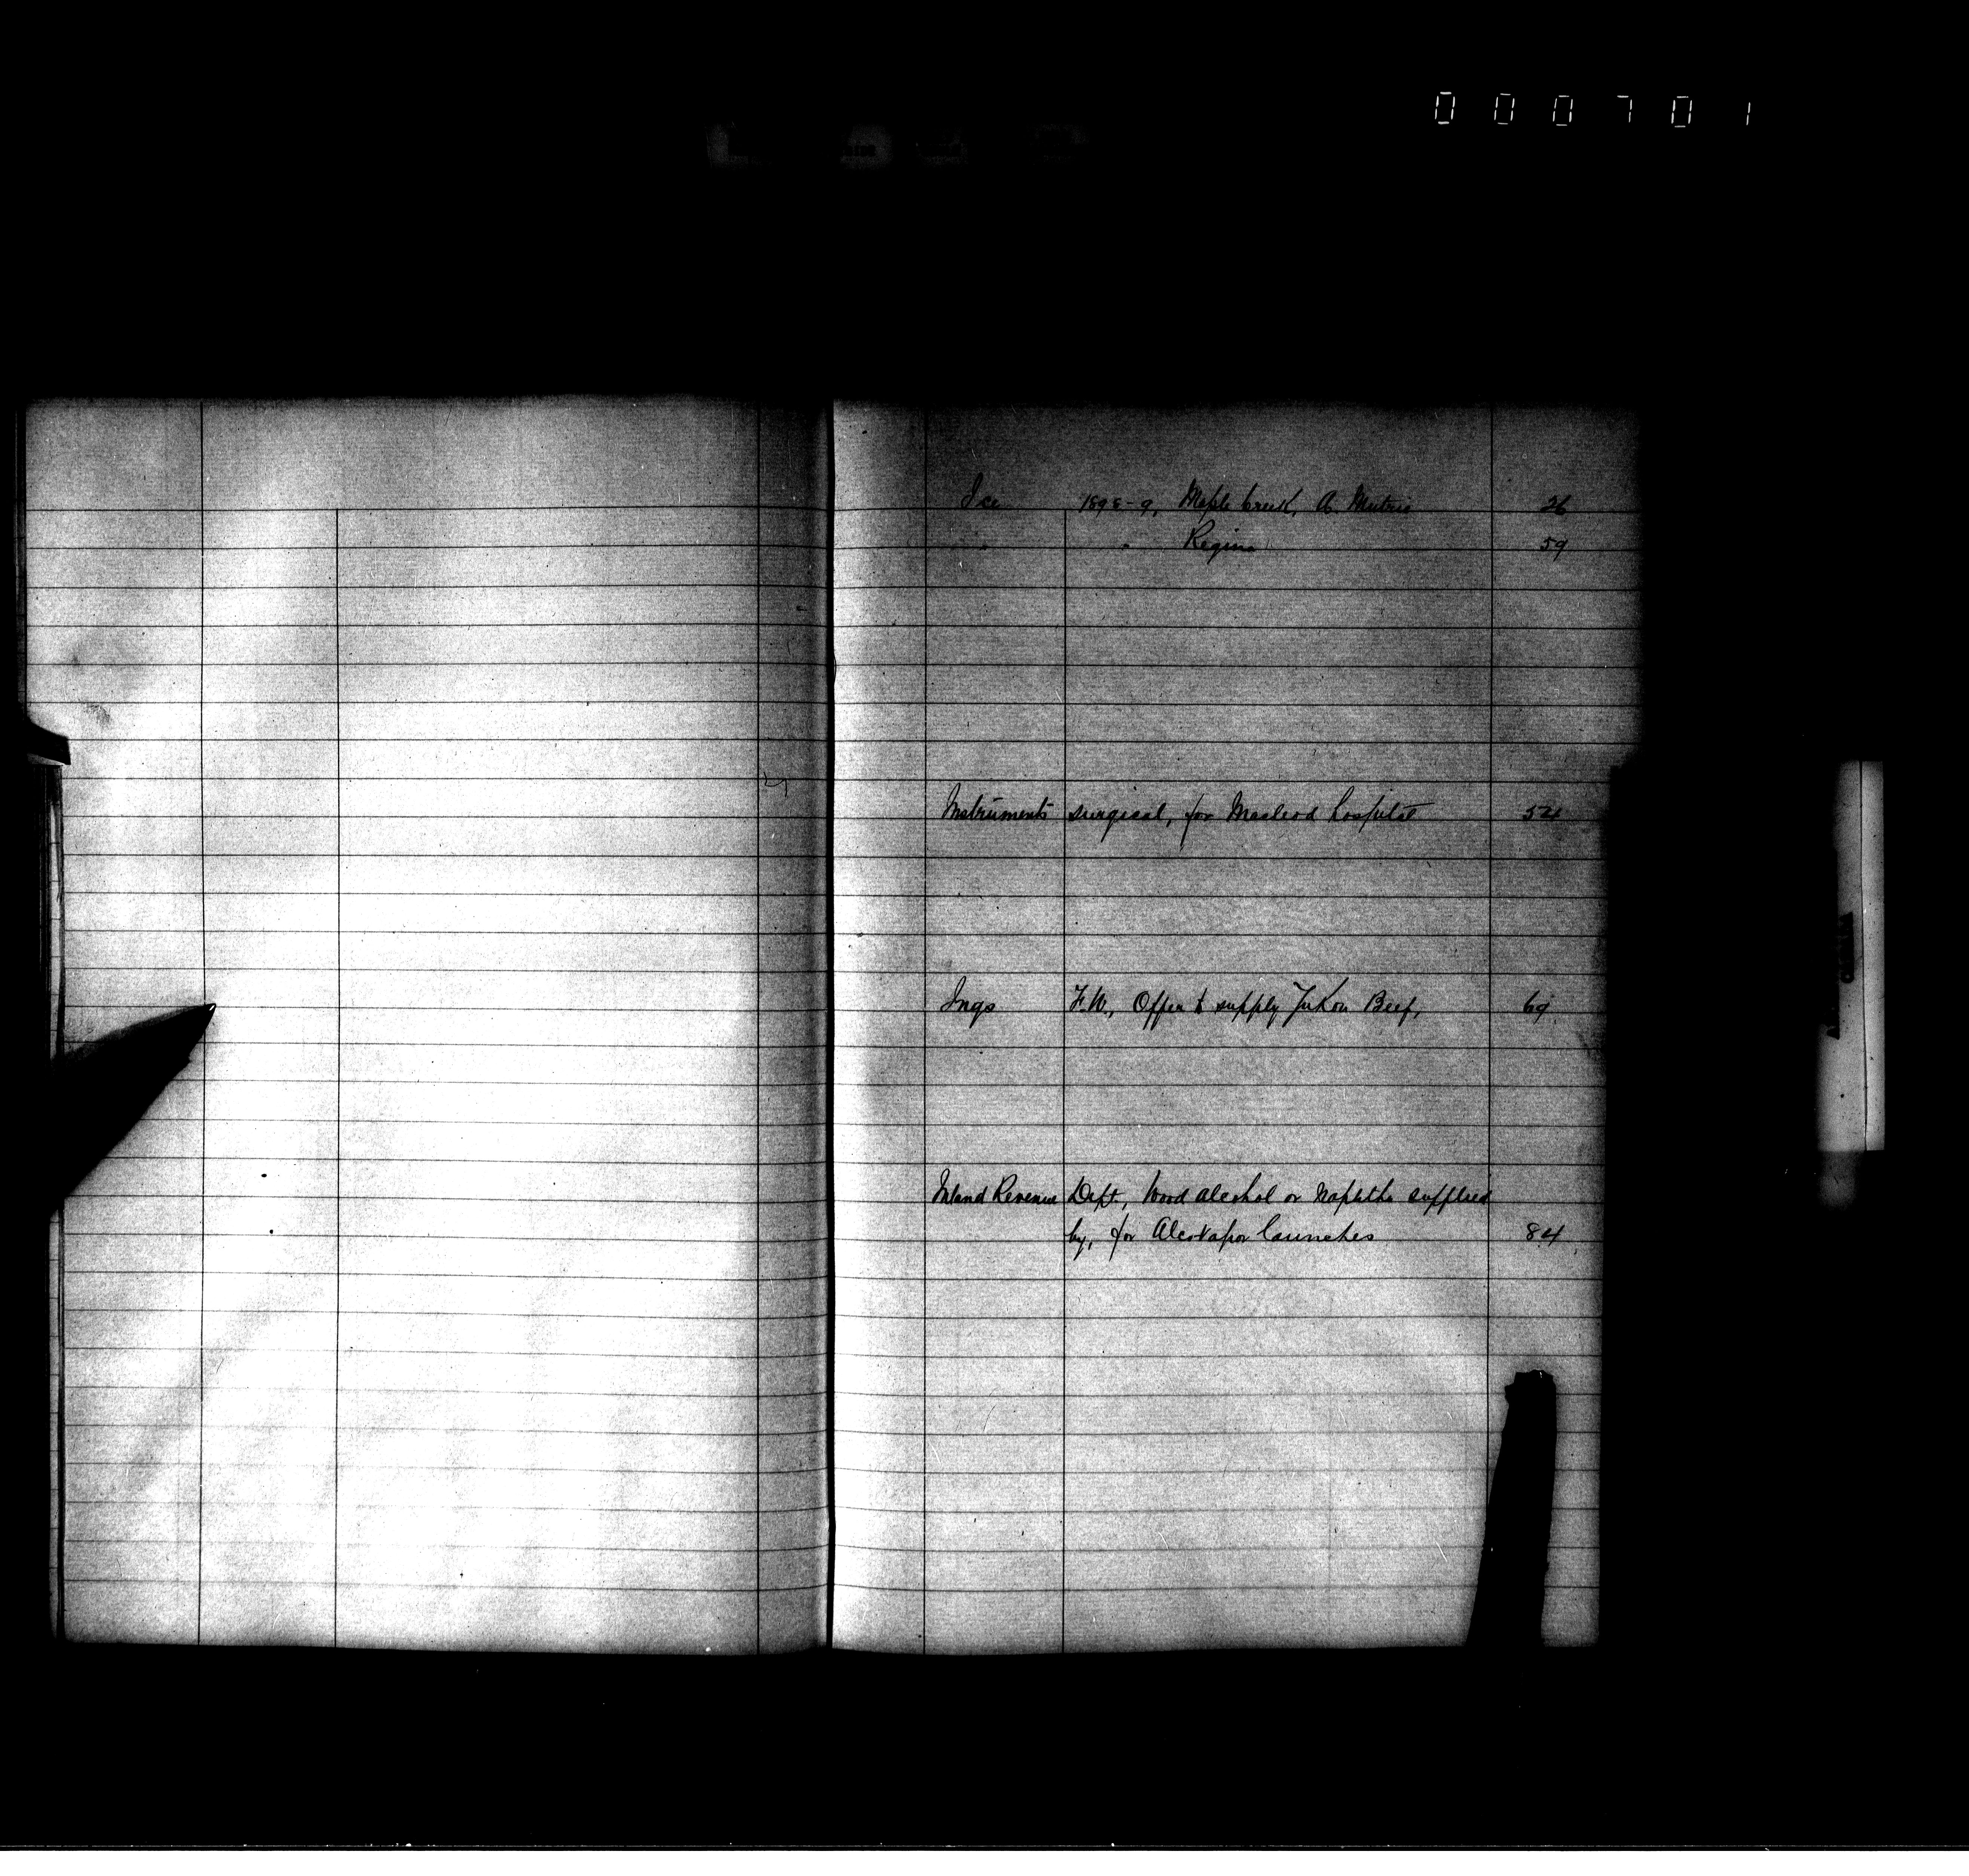 000701
Ice 1898-9, Maple Creek, A. Mutrie 26
" " Regina 59
Instruments surgical, for Macleod hospital 54
Ings F.W., Offer to supply Yukon Beef, 69
Inland Revenue Dept., Wood alcohol or Naphtha supplied
by, for Alcovapor launches 84